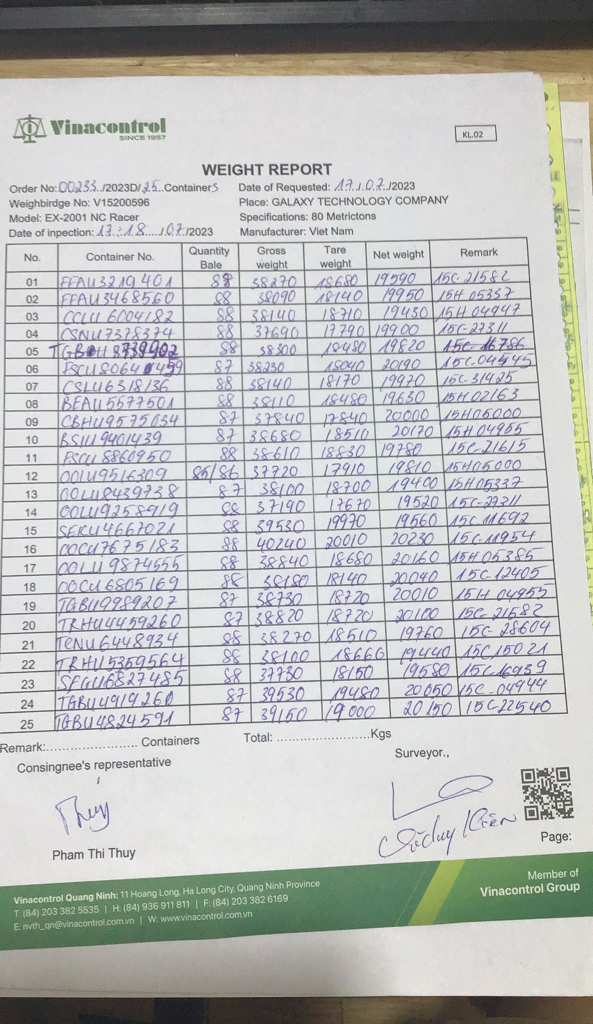 Vinacontrol
SINCE 1957
KL.02
WEIGHT REPORT
Order No: 00233../2023D/25.Containers Date of Requested: 17./.07./2023
Weighbirdge No: V15200596 Place: GALAXY TECHNOLOGY COMPANY
Model: EX-2001 NC Racer Specifications: 80 Metrictons
Date of inpection: 17÷18.../07/2023 Manufacturer: Viet Nam
No. Container No. Quantity Bale Gross weight Tare weight Net weight Remark
01 FFAU3219401 88 38270 18680 19590 15C-21582
02 FFAU3468560 88 38090 18140 19950 15H05337
03 CCLU 6004182 88 38140 18710 19430 15H04947
04 CSNU7378374 88 37690 17790 19900 15C-27311
05 88 38300 18480 19820 15C-16786
06 87 38230 18040 20190 15C-04545
07 CSLU6318136 88 38140 18170 19970 15C-31425
08 BEAU5577501 88 38110 18480 19630 15H02163
09 CBHU9575034 87 37840 17840 20000 15H05000
10 BSIU9401439 87 38680 18510 20170 15H04955
11 FSCU8860950 88 38610 18830 19780 15C-21615
12 OOLU9516309 85/86 37720 17910 19810 15H05000
13 OOLU8439738 87 38100 18700 19400 15H05337
14 OOLU9258919 88 37190 17670 19520 15C-27311
15 SEKU4667021 88 39530 19970 19560 15C11692
16 OOCU7675183 88 40240 20010 20230 15C-11954
17 OOLU9874555 88 38840 18680 20160 15H05385
18 OOCU6805169 88 38180 18140 20040 15C-12405
19 TGBU9989207 87 38730 18720 20010 15H 04955
20 TRHU4459260 87 38820 18720 20100 15C-21582
21 TENU6448934 88 38270 18510 19760 15C-28604
22 TRHU5359564 88 38100 18660 19440 15C15021
23 SEGU6827485 88 37730 18150 19580 15C16939
24 TGBU4919260 87 39530 19480 20050 15C-04944
25 TGBU4824591 87 39150 19000 20150 15C-22540
Remark:........................ Containers Total: ........................Kgs
Consingnee's representative Surveyor.,
Thuy
Pham Thi Thuy
Page:
Vinacontrol Quang Ninh: 11 Hoang Long, Ha Long City, Quang Ninh Province
T: (84) 203 382 5535 | H: (84) 936 911 811 | F: (84) 203 382 6169
E: nvth_qn@vinacontrol.com.vn | W: www.vinacontrol.com.vn
Member of
Vinacontrol Group